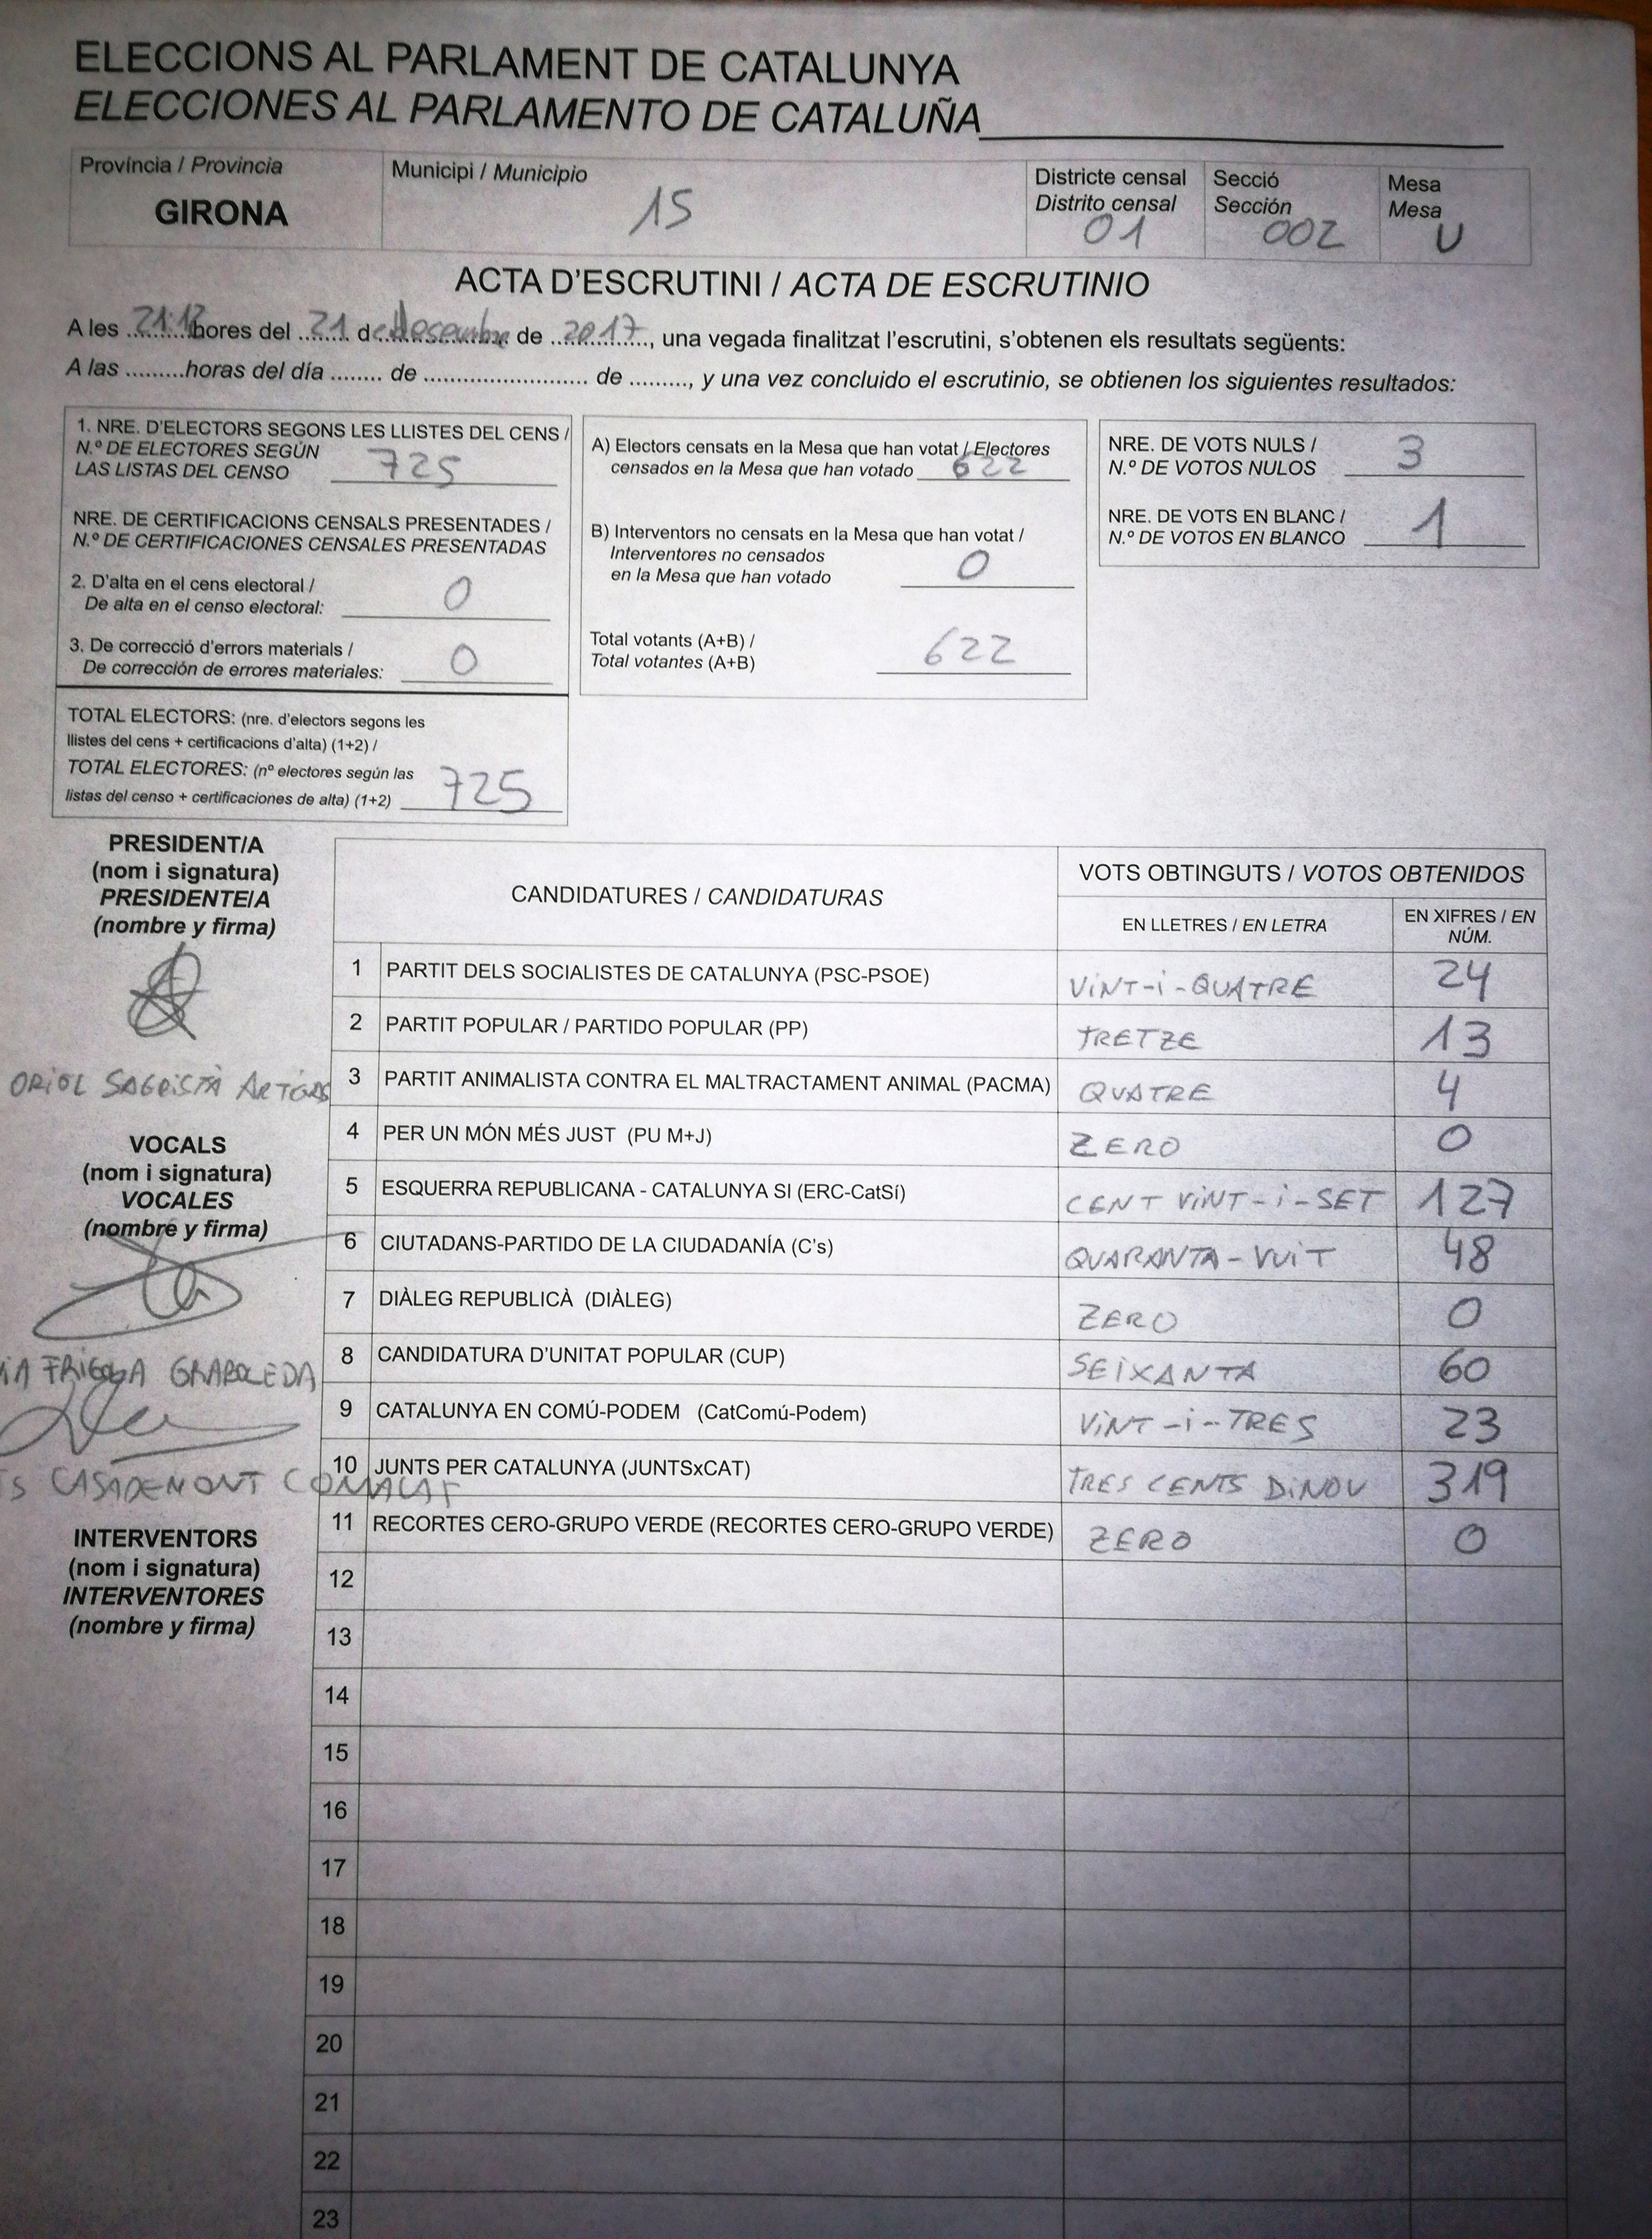 ELECCIONS AL PARLAMENT DE CATALUNYA
ELECCIONES AL PARLAMENTO DE CATALUÑA
Província / Provincia
GIRONA
Municipi / Municipio
15
Districte censal
Distrito censal
01
Secció
Sección
002
Mesa
Mesa
U
ACTA D'ESCRUTINI / ACTA DE ESCRUTINIO
A les 21:13 hores del 21 de desembre de 2017, una vegada finalitzat l'escrutini, s'obtenen els resultats següents:
A las .........horas del día ........ de .......................... de ........., y una vez concluido el escrutinio, se obtienen los siguientes resultados:
1. NRE. D'ELECTORS SEGONS LES LLISTES DEL CENS /
N.º DE ELECTORES SEGÚN
LAS LISTAS DEL CENSO 725
NRE. DE CERTIFICACIONS CENSALS PRESENTADES /
N.º DE CERTIFICACIONES CENSALES PRESENTADAS
2. D'alta en el cens electoral /
De alta en el censo electoral: 0
3. De correcció d'errors materials /
De corrección de errores materiales: 0
TOTAL ELECTORS: (nre. d'electors segons les
llistes del cens + certificacions d'alta) (1+2) /
TOTAL ELECTORES: (nº electores según las
listas del censo + certificaciones de alta) (1+2) 725
A) Electors censats en la Mesa que han votat / Electores
censados en la Mesa que han votado 622
B) Interventors no censats en la Mesa que han votat /
Interventores no censados
en la Mesa que han votado 0
Total votants (A+B) /
Total votantes (A+B) 622
NRE. DE VOTS NULS /
N.º DE VOTOS NULOS 3
NRE. DE VOTS EN BLANC /
N.º DE VOTOS EN BLANCO 1
PRESIDENT/A
(nom i signatura)
PRESIDENTE/A
(nombre y firma)
ORIOL SAGRISTÀ ARTIGAS
VOCALS
(nom i signatura)
VOCALES
(nombre y firma)
FRIGOLA GRABOLEDA
CASADEMONT COMALAT
INTERVENTORS
(nom i signatura)
INTERVENTORES
(nombre y firma)
CANDIDATURES / CANDIDATURAS
VOTS OBTINGUTS / VOTOS OBTENIDOS
EN LLETRES / EN LETRA
EN XIFRES / EN
NÚM.
1 PARTIT DELS SOCIALISTES DE CATALUNYA (PSC-PSOE) VINT-i-QUATRE 24
2 PARTIT POPULAR / PARTIDO POPULAR (PP) TRETZE 13
3 PARTIT ANIMALISTA CONTRA EL MALTRACTAMENT ANIMAL (PACMA) QUATRE 4
4 PER UN MÓN MÉS JUST (PU M+J) ZERO 0
5 ESQUERRA REPUBLICANA - CATALUNYA SI (ERC-CatSí) CENT VINT-i-SET 127
6 CIUTADANS-PARTIDO DE LA CIUDADANÍA (C's) QUARANTA-VUIT 48
7 DIÀLEG REPUBLICÀ (DIÀLEG) ZERO 0
8 CANDIDATURA D'UNITAT POPULAR (CUP) SEIXANTA 60
9 CATALUNYA EN COMÚ-PODEM (CatComú-Podem) VINT-i-TRES 23
10 JUNTS PER CATALUNYA (JUNTSxCAT) TRES CENTS DINOU 319
11 RECORTES CERO-GRUPO VERDE (RECORTES CERO-GRUPO VERDE) ZERO 0
12
13
14
15
16
17
18
19
20
21
22
23